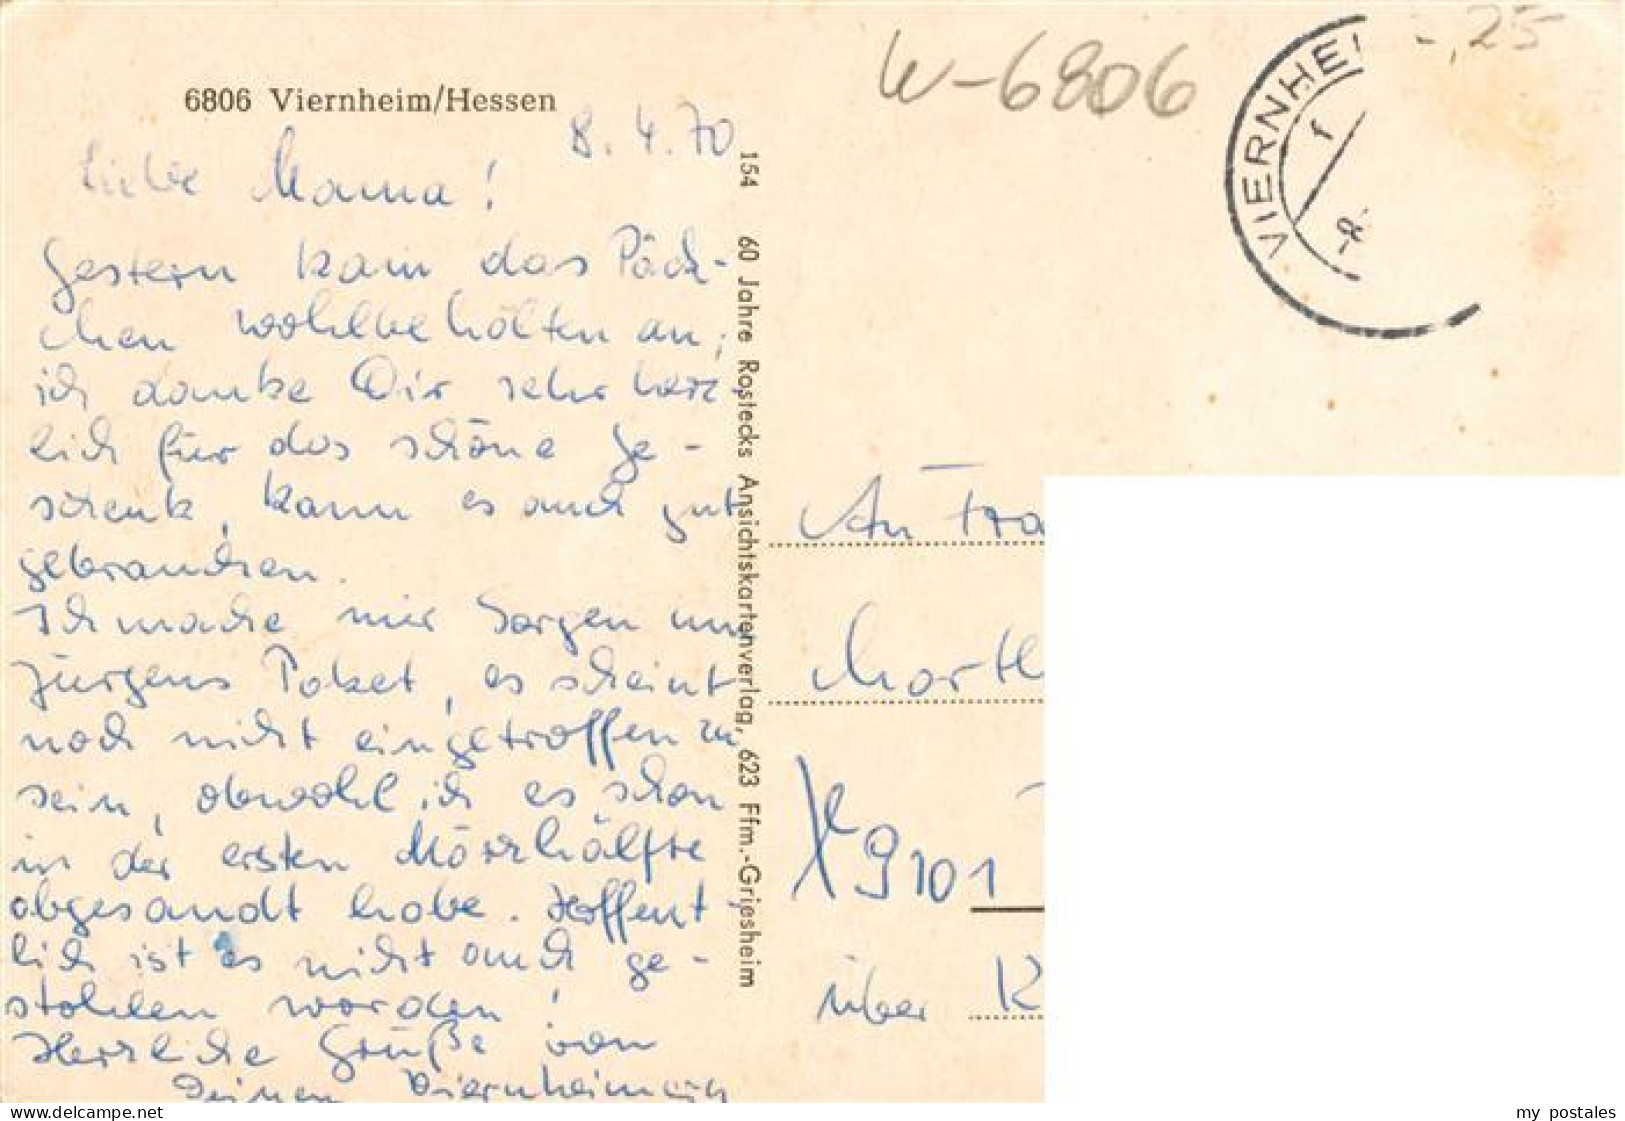 6806 Viernheim/Hessen
8.4.70
Liebe Mama!
Gestern kam das Päck-
chen wohlbehalten an,
ich danke Dir sehr herz-
lich für das schöne Ge-
schenk, kann es auch gut
gebrauchen.
Ich mache mir Sorgen um
Jürgens Paket, es scheint
noch nicht eingetroffen zu
sein, obwohl ich es schon
in der ersten Märzhälfte
abgesandt habe. Hoffent-
lich ist es nicht auch ge-
stohlen worden!
Herzliche Grüße von
Deinen Viernheimern
154 60 Jahre Rostecks Ansichtskartenverlag, 623 Ffm.-Griesheim
W-6806
-,25
VIERNHEI
f
-8.
An Fra
Marth
X 9101
über K
my postales
DELCAMPE.NET